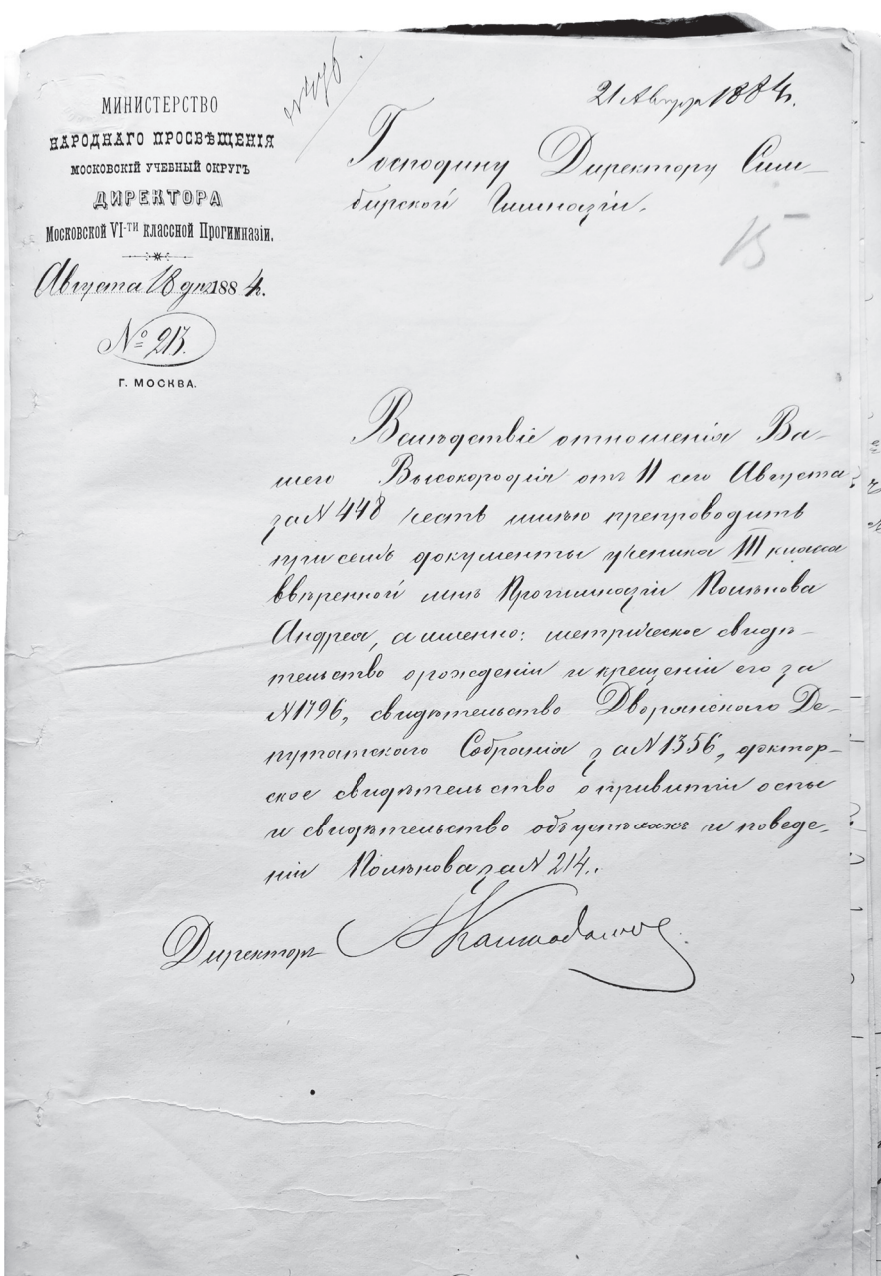 МИНИСТЕРСТВО
НАРОДНАГО ПРОСВѢЩЕНІЯ
МОСКОВСКІЙ УЧЕБНЫЙ ОКРУГЪ
ДИРЕКТОРА
Московской VI-ти классной Прогимназіи.
Августа 18 дня 1884 г.
№ 213.
Г. МОСКВА.
21 Августа 1884 г.
Господину Директору Сим-
бирской Гимназіи.
15
Вслѣдствіе отношенія Ва-
шего Высокородія отъ 11 сего Августа
за N 448 честь имѣю препроводить
при семъ документы ученика III класса
ввѣренной мнѣ Прогимназіи Полѣнова
Андрея, а именно: метрическое свидѣ-
тельство о рожденіи и крещеніи его за
N 1796, свидѣтельство Дворянскаго Де-
путатскаго Собранія за N 1356, доктор-
ское свидѣтельство о привитіи оспы
и свидѣтельство объ успѣхахъ и поведе-
ніи Полѣнова за N 214.
Директоръ